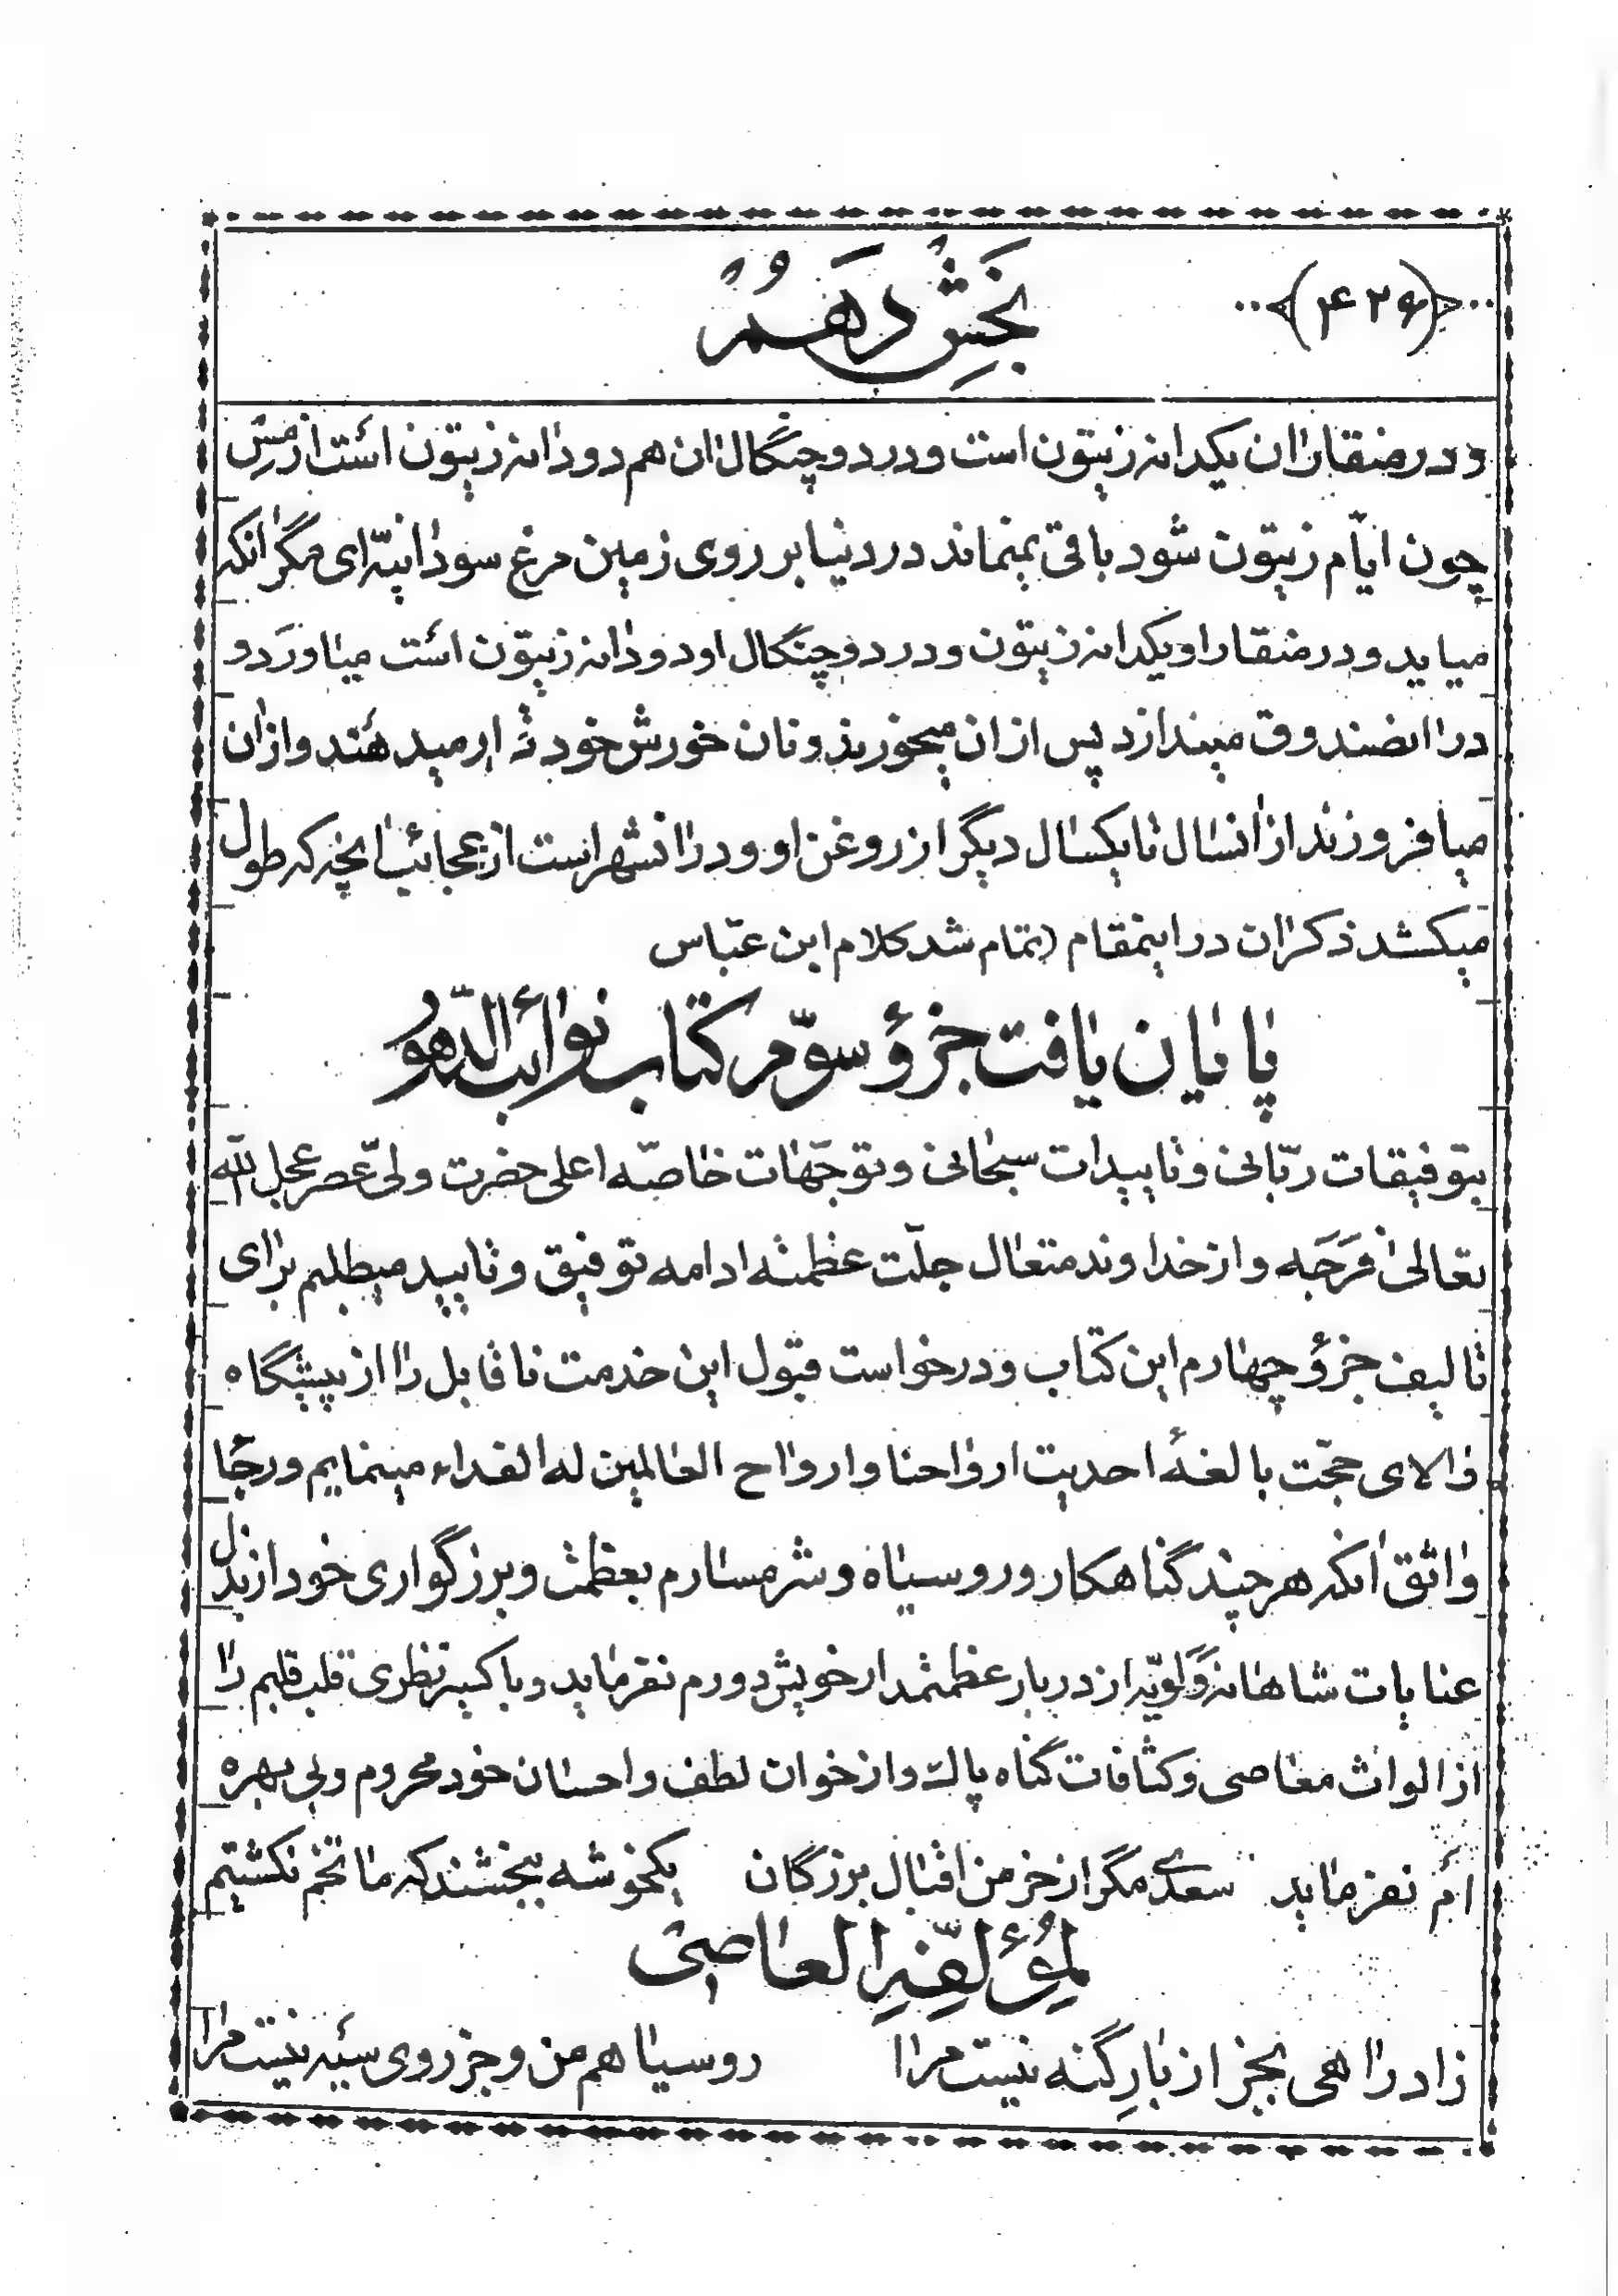 ﴿۴۲۶﴾ بخش دهم
و در منقار آن یکدانه زیتون است و در دو چنگال آن هم دو دانه زیتون است از مس
چون ایام زیتون شود باقی نمیماند در دنیا بر روی زمین مرغ سودانیّه‌ای مگر آنکه
میاید و در منقار او یکدانه زیتون و در دو چنگال او دو دانه زیتون است میاورد و
در آنصندوق میندازد پس از آن میخورند و نان خورش خود قرار میدهند و از آن
میافروزند از آنسال تا یکسال دیگر از روغن او و در آنشهر است از عجائب آنچه که طول
میکشد ذکر آن در اینمقام (تمام شد کلام ابن عبّاس
پایان یافت جزؤ سوّم کتاب نوائب الدّهور
بتوفیقات ربّانی و تاییدات سبحانی و توجّهات خاصّه اعلی حضرت ولیّ عصر عجل الله
تعالی فرَجَه و از خداوند متعال جلّت عظمته ادامه توفیق و تایید میطلبم برای
تالیف جزؤ چهارم این کتاب و درخواست قبول این خدمت ناقابل را از پیشگاه
والای حجّت بالغهٔ احدیت ارواحنا و ارواح العالمین له الفداء مینمایم و رجا
واثق آنکه هر چند گناهکار و روسیاه و شرمسارم بعظمت و بزرگواری خود از بذل
عنایات شاهانه وَلَویّه از دربار عظمتمدار خویش دورم نفرماید و با کیمیا نظری قلب قلبم را
از الواث معاصی و کثافات گناه پاک و از خوان لطف و احسان خود محروم و بی بهره
ام نفرماید سعدی مگر از خرمن اقبال بزرگان یکخوشه ببخشند که ما تخم نکشتیم
لِمُؤلّفِهِ العاصی
زاد راهی بجز از بارِ گنه نیست مرا روسیاهم من و جز روی سیه نیست مرا